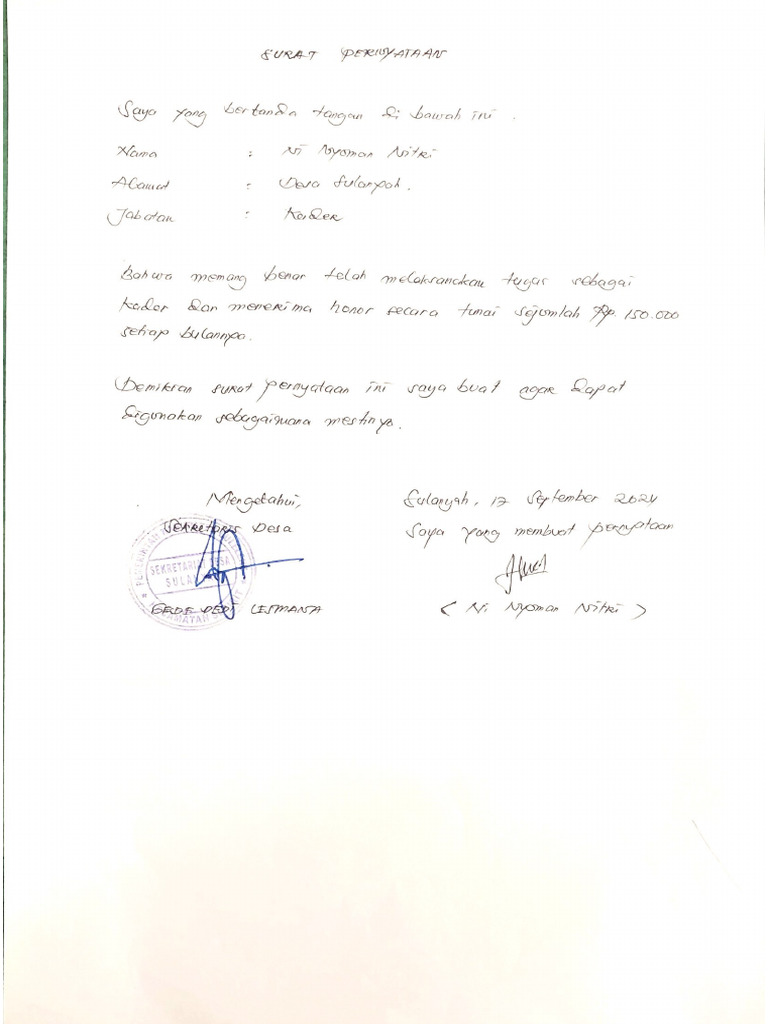 SURAT PERNYATAAN
Saya yang bertanda tangan di bawah ini.
Nama : Ni Nyoman Nitri
Alamat : Desa Sulanyah.
Jabatan : Kader
Bahwa memang benar telah melaksanakan tugas sebagai
kader dan menerima honor secara tunai sejumlah Rp. 150.000
setiap bulannya.
Demikian surat pernyataan ini saya buat agar dapat
digunakan sebagaimana mestinya.
Mengetahui, Sulanyah, 17 September 2024
Sekretaris Desa Saya yang membuat pernyataan
SEKRETARIAT DESA
GEDE DEDI LESMANA ( Ni Nyoman Nitri )